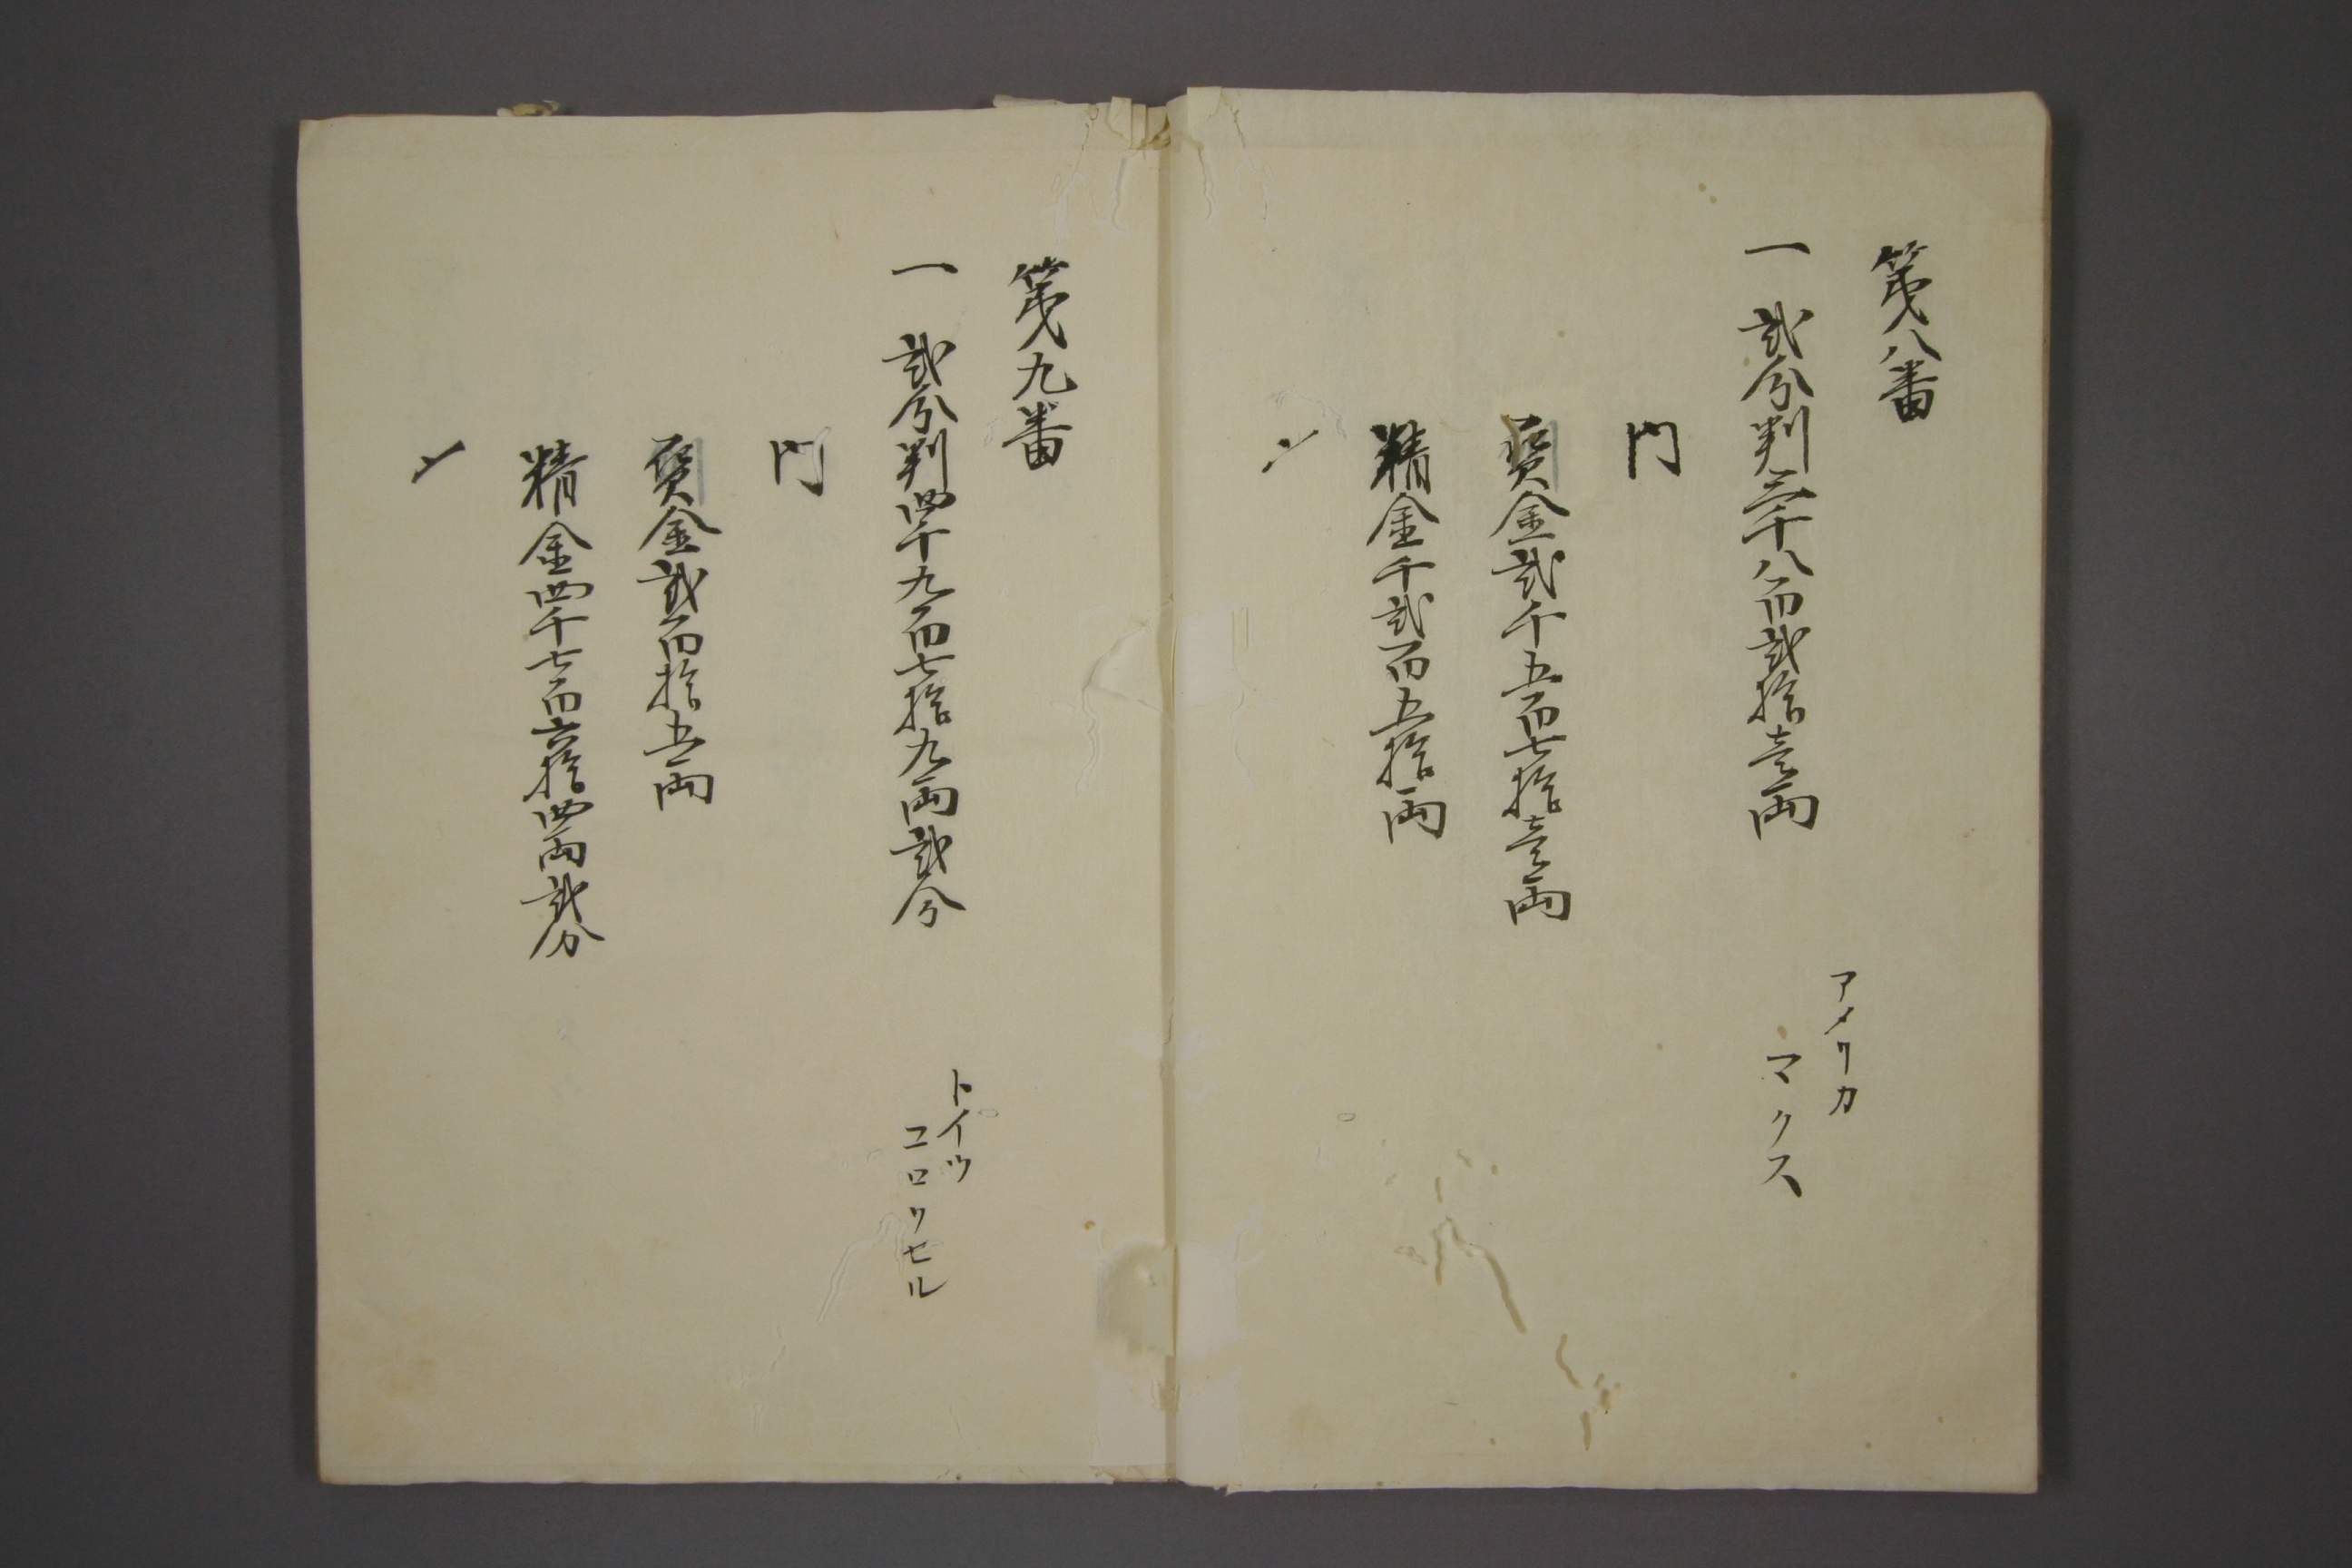 第八番
アメリカ
一 弐分判三千八百弐拾壱両 マクス
内
贋金弐千五百七拾壱両
精金千弐百五拾両
〆
第九番
トイツ
一 弐分判四千九百七拾九両弐分 コロリセル
内
贋金弐百拾五両
精金四千七百六拾四両弐分
〆